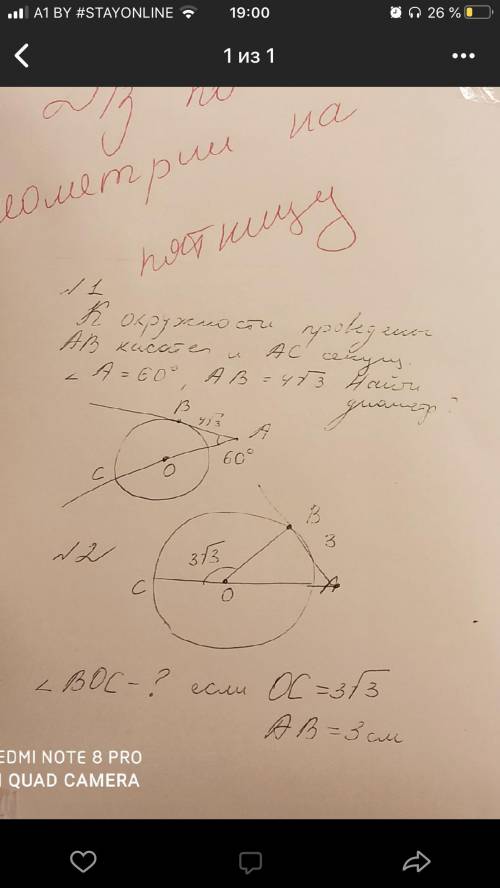 A1 BY #STAYONLINE 19:00 26 %
1 из 1
ДЗ по
геометрии на
пятницу
№1
К окружности проведены
AB касател и AC секущ.
∠A = 60°, AB = 4√3 Найти
диаметр?
B
4√3
A
60°
O
C
№2
B
3√3
3
C
O
A
∠BOC - ? если OC = 3√3
AB = 3 см
REDMI NOTE 8 PRO
AI QUAD CAMERA